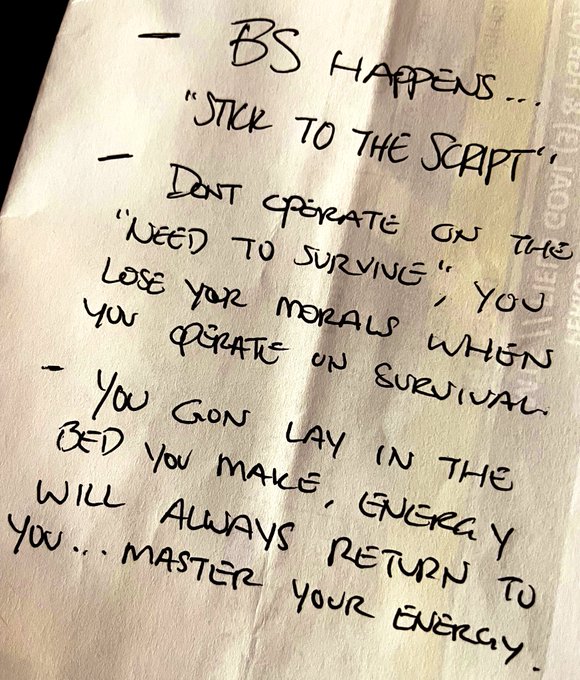 - BS HAPPENS...
"STICK TO THE SCRIPT"
- DONT OPERATE ON THE
"NEED TO SURVIVE", YOU
LOSE YOUR MORALS WHEN
YOU OPERATE ON SURVIVAL.
- YOU GON LAY IN THE
BED YOU MAKE, ENERGY
WILL ALWAYS RETURN TO
YOU... MASTER YOUR ENERGY.